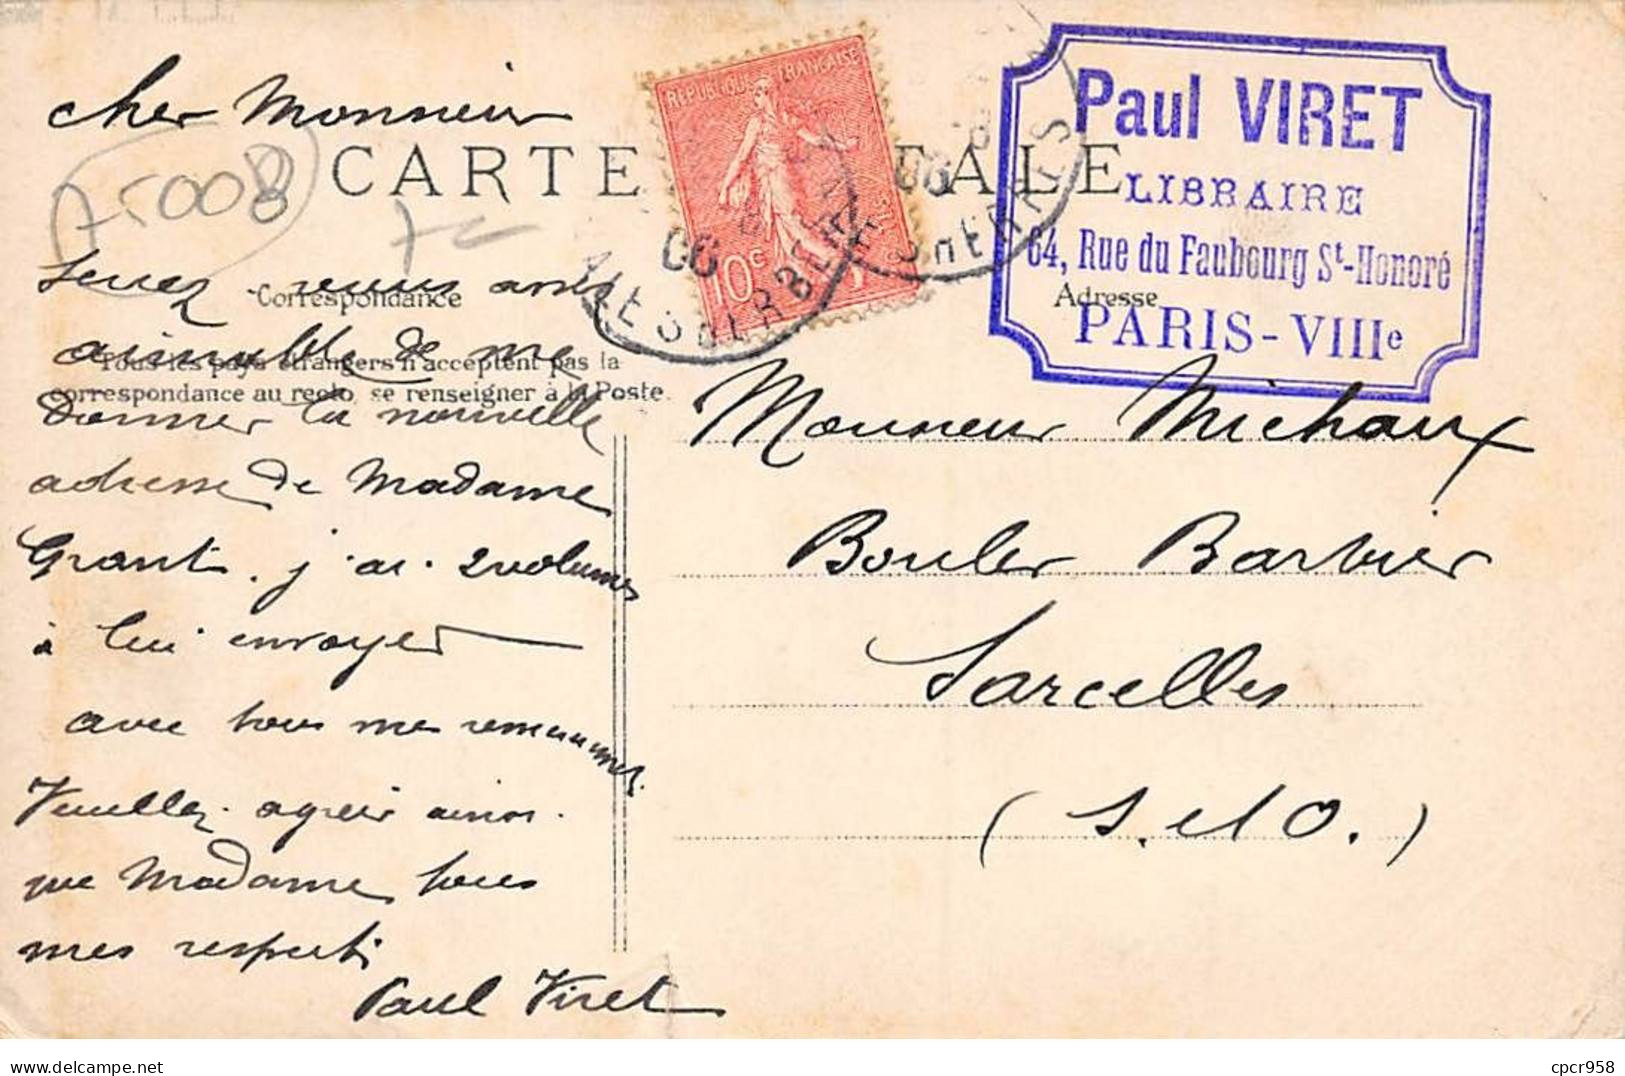 Cher Monsieur
CARTE POSTALE
75008
Correspondance
Serez vous assez
aimable de me
Tous les pays étrangers n'acceptent pas la
correspondance au recto, se renseigner à la Poste.
donner la nouvelle
adresse de Madame
Grant. j'ai 2 volumes
à lui envoyer
avec tous mes
Veuillez agréer ainsi
que Madame tous
mes respects
Paul Viret
REPUBLIQUE FRANÇAISE
10c
06
Paul VIRET
LIBRAIRE
64, Rue du Faubourg St-Honoré
PARIS-VIIIe
Adresse
Monsieur Michaux
Bouler Barbier
Sarcelles
(S. et O.)
cpcr958